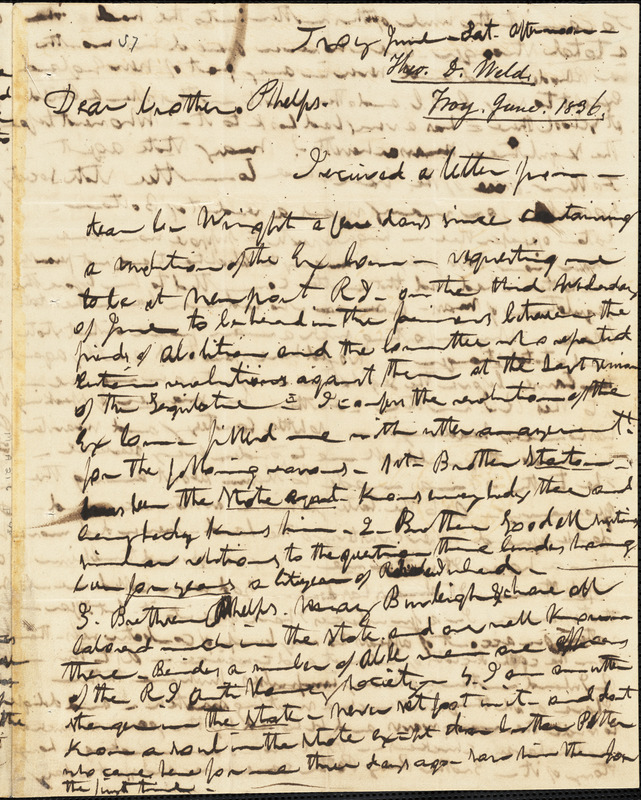 57
Troy June - Sat. afternoon -
Theo. D. Weld,
Dear brother Phelps.
Troy. June. 1836.
I received a letter from -
dear br Wright a few days since containing
a resolution of the Ex Com - requesting me
to be at Newport R I - on the third Wednesday
of June to be heard in the between the
friends of abolition and the Committee who reported
certain resolutions against them at the last session
of the Legislature - I confess the resolution of the
Ex Com - filled me with utter amazement!
for the following reasons - 1st - Brother Stanton -
has been the State agent - knows everybody there and
everybody knows him - 2 - Brother Goodell
similar relations to the question there besides having
been for years a citizen of Rhode Island -
3. Brethren Phelps. May Burleigh & have all
labored much in the State and are well known
there - Besides a number of able men are
of the R I Anti Slavery Society - 4. I am an utter
stranger in the State - never set foot in it - and don't
know a soul in the State except dear brother Potter
who came here for me three days ago - saw him then for
the first time -